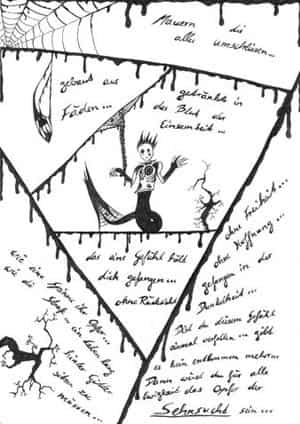 Mauern die
alles umschliesen...
gebaut aus
Fäden...
getränkt in
das Blut der
Einsamkeit...
das eine Gefühl hält
dich gefangen...
ohne Rücksicht
wie eine Spinne ihr Opfer...
wie die
ein leben lang
hinter Gitter
sitzen zu
müssen...
ohne Freiheit...
ohne Hoffnung...
gefangen in der
Dunkelheit...
Bist du diesem Gefühl
einmal verfallen... gibt
es kein entkommen mehr...
Dann wirst du für alle
Ewigkeit das Opfer der
Sehnsucht sein...